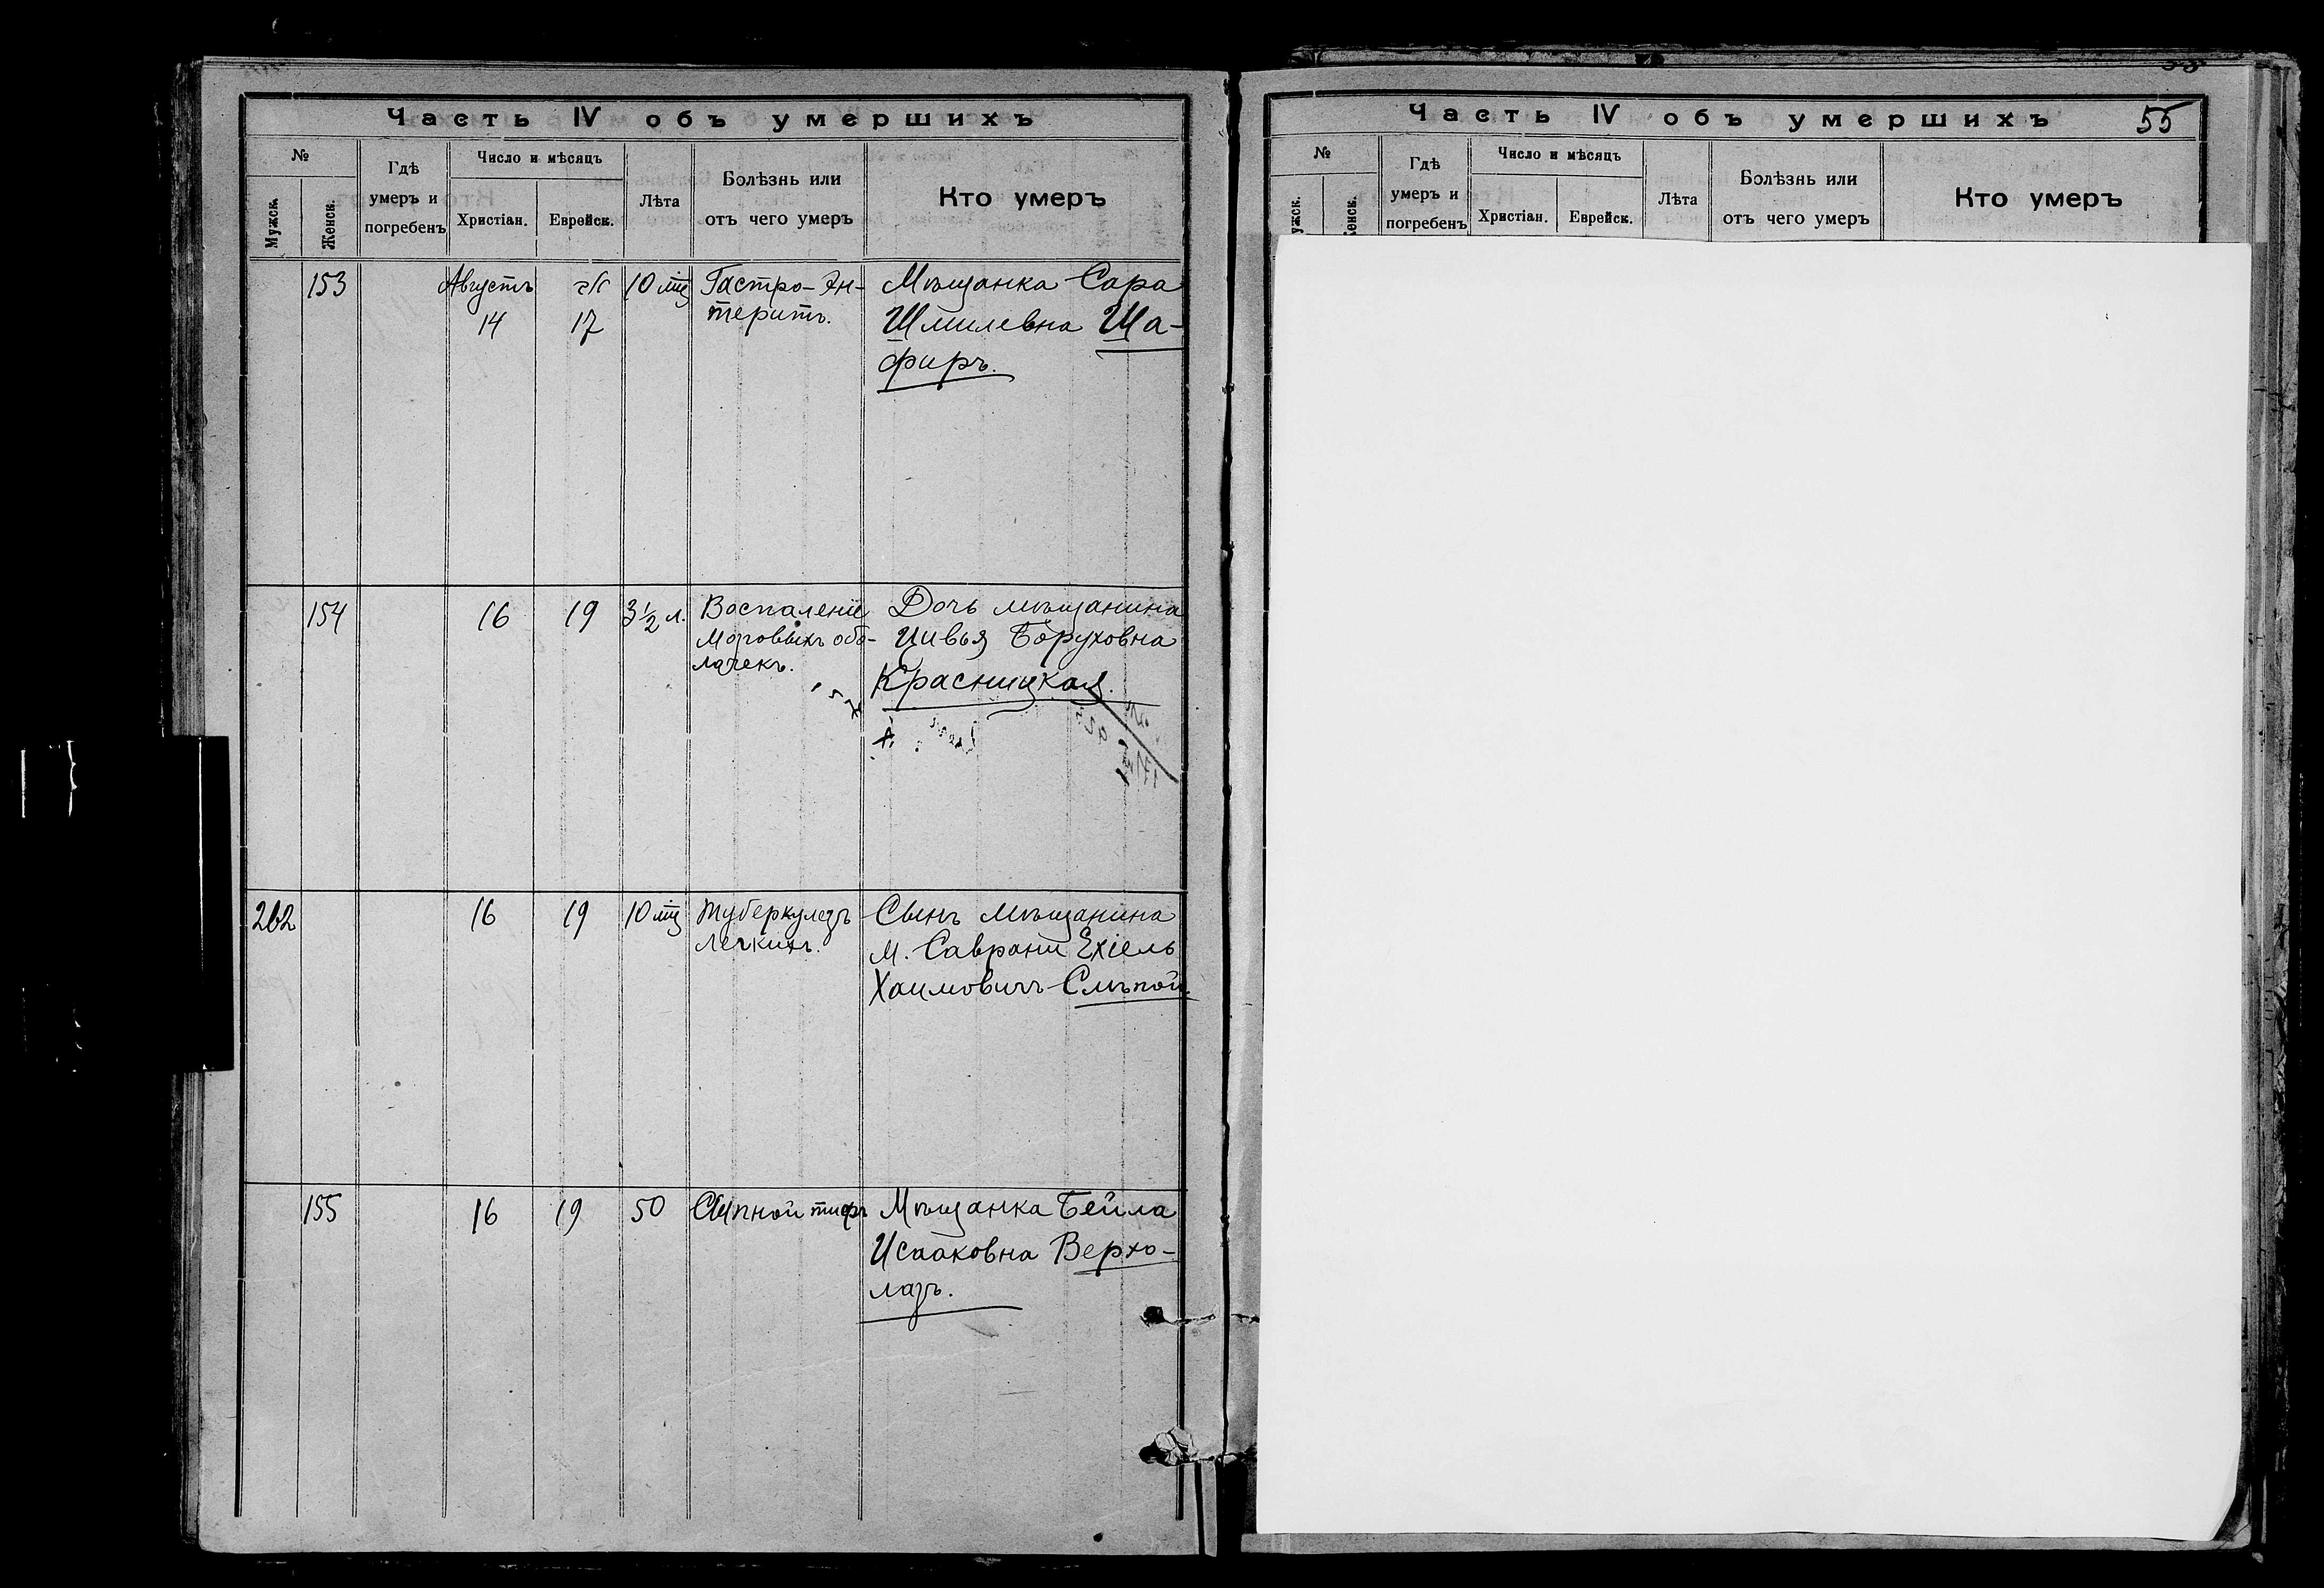 Часть IV объ умершихъ
№
Мужск.
Женск.
Гдѣ
умеръ и
погребенъ
Число и мѣсяцъ
Христіан.
Еврейск.
Лѣта
Болѣзнь или
отъ чего умеръ
Кто умеръ
153
Августъ
14
17
10 мц
Гастро-Эн-
теритъ.
Мѣщанка Сара
Шмилевна Ша-
фиръ.
154
16
19
3½ л.
Воспаленіе
Мозговыхъ обо-
лачекъ.
Дочь мѣщанина
Цивья Боруховна
Красницкая.
262
16
19
10 мц
Туберкулезъ
Легкихъ.
Сынъ мѣщанина
м. Саврани Ехіель
Хаимовичъ Слѣпой.
155
16
19
50
Сыпной тифъ
Мѣщанка Бейла
Исааковна Верхо-
лазъ.
Часть IV объ умершихъ
55
№
ужск.
енск.
Гдѣ
умеръ и
погребенъ
Число и мѣсяцъ
Христіан.
Еврейск.
Лѣта
Болѣзнь или
отъ чего умеръ
Кто умеръ